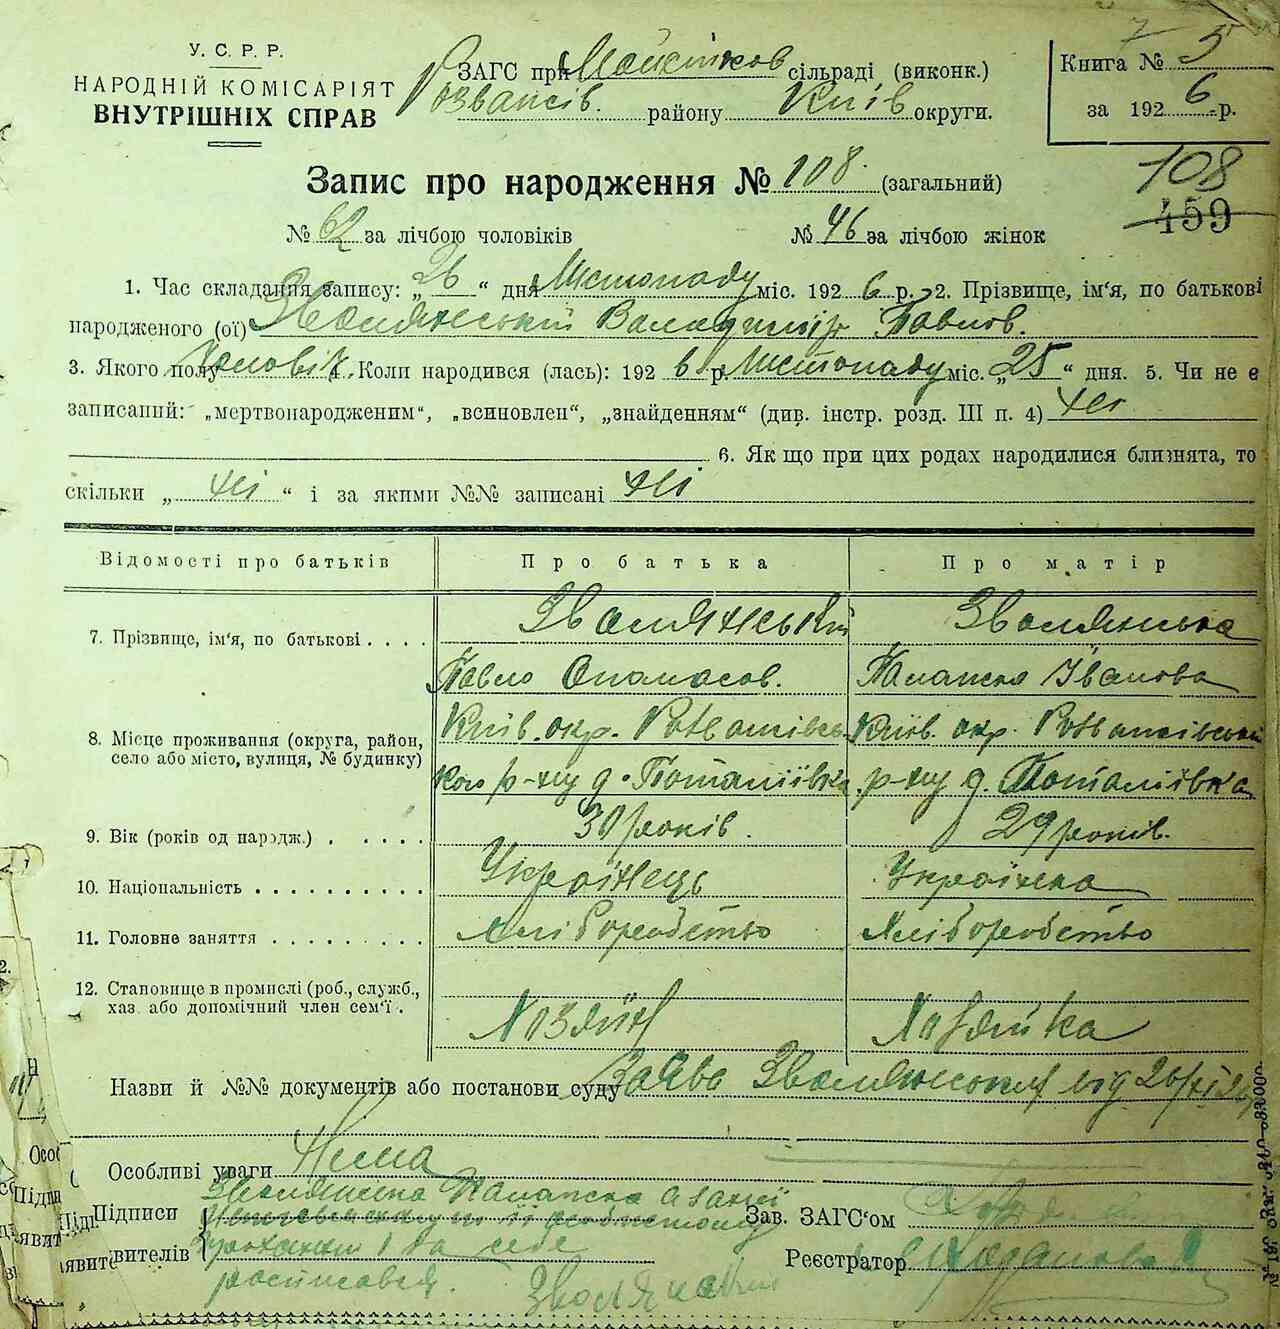 У. С. Р. Р.
НАРОДНІЙ КОМІСАРІЯТ
ВНУТРІШНІХ СПРАВ
ЗАГС при сільраді (виконк.)
району Київ округи.
Книга № 5
за 1926 р.
Запис про народження № 108 (загальний)
108
459
№ 62 за лічбою чоловіків № 46 за лічбою жінок
1. Час складання запису: „26“ дня Листопаду міс. 1926 р. 2. Прізвище, ім'я, по батькові
народженого (ої) Володимир Павлов.
3. Якого полу чоловік. Коли народився (лась): 1926 р. Листопаду міс. „25“ дня. 5. Чи не є
записаний: „мертвонародженим“, „всиновлен“, „знайденням“ (див. інстр. розд. III п. 4) ні
6. Як що при цих родах народилися близнята, то
скільки „ні“ і за якими №№ записані ні
Відомості про батьків Про батька Про матір
7. Прізвище, ім'я, по батькові . . . . Званянський Званянська
Павло Опанасов. Палажка Іванова
8. Місце проживання (округа, район, Київ. окр. Розважівсь- Київ. окр. Розважівський
село або місто, вулиця, № будинку) кого р-ну д. р-ну д.
9. Вік (років од народж.) . . . . . 30 років. 29 років.
10. Національність . . . . . . . . . . Українець Українка
11. Головне заняття . . . . . . . . . Хліборобство Хліборобство
12. Становище в промислі (роб., служб.,
хаз. або допомічний член сем'ї . Хозяїн Хозяйка
Назви й №№ документів або постанови суду Заява від 26/XI 26
Особливі уваги Нема
Підписи Палажка а за неї Зав. ЗАГС'ом
явителів за себе Реєстратор
росписався.